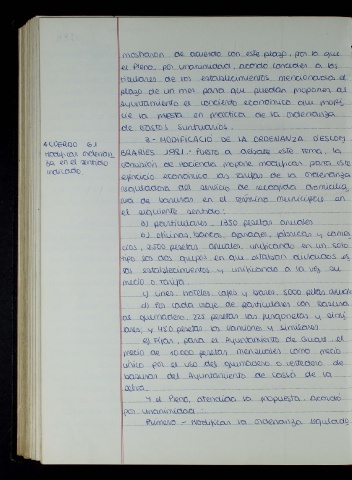 mostraron de acuerdo con este plazo, por lo que
el Pleno, por unanimidad, acordó conceder a los
titulares de los establecimientos mencionados el
plazo de un mes para que puedan proponer al
Ayuntamiento el concierto económico que
la puesta en práctica de la ordenanza
de gastos suntuarios.
ACUERDO 6.1
modificar ordenan-
za en el sentido
indicado
8.- MODIFICACIÓ DE LA ORDENANZA D'ESCOM
BRARIES 1981.- Puesto a debate este tema, la
comisión de hacienda propone modificar para este
ejercicio económico las tarifas de la ordenanza
reguladora del servicio de recogida domicilia
ria de basuras en el término municipal en
el siguiente sentido:
a) particulares, 1350 pesetas anuales
b) oficinas, bancos, garajes, fábricas y comer
cios, 2500 pesetas anuales, unificando en un solo
tipo los dos grupos en que estaban divididos
los establecimientos y unificando a la vez su
precio o tarifa.
c) cines, hoteles, cafés y bares, 5000 ptas anuales
d) por cada viaje de particulares con basura
al quemadero, 225 pesetas las furgonetas y simi
lares; y 450 pesetas los camiones y similares
e) Fijar, para el Ayuntamiento de el
precio de 10000 pesetas mensuales como precio
único por el uso del quemadero o vertedero de
basuras del Ayuntamiento de Cassà de la
Selva.
Y el Pleno, atendida la propuesta, acordó
por unanimidad:
Primero.- Modificar la ordenanza reguladora